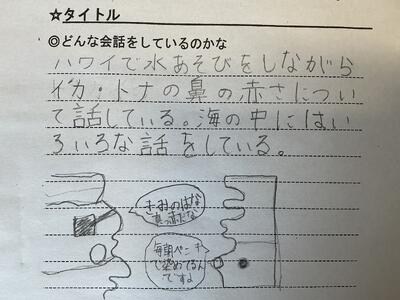 ☆タイトル
◎どんな会話をしているのかな
ハワイで水あそびをしながら
イカ・トナの鼻の赤さについ
て話している。海の中にはい
ろいろな話をしている。
きみのはな
真っ赤だな
毎朝ペンキ
で染めてるん
ですよ